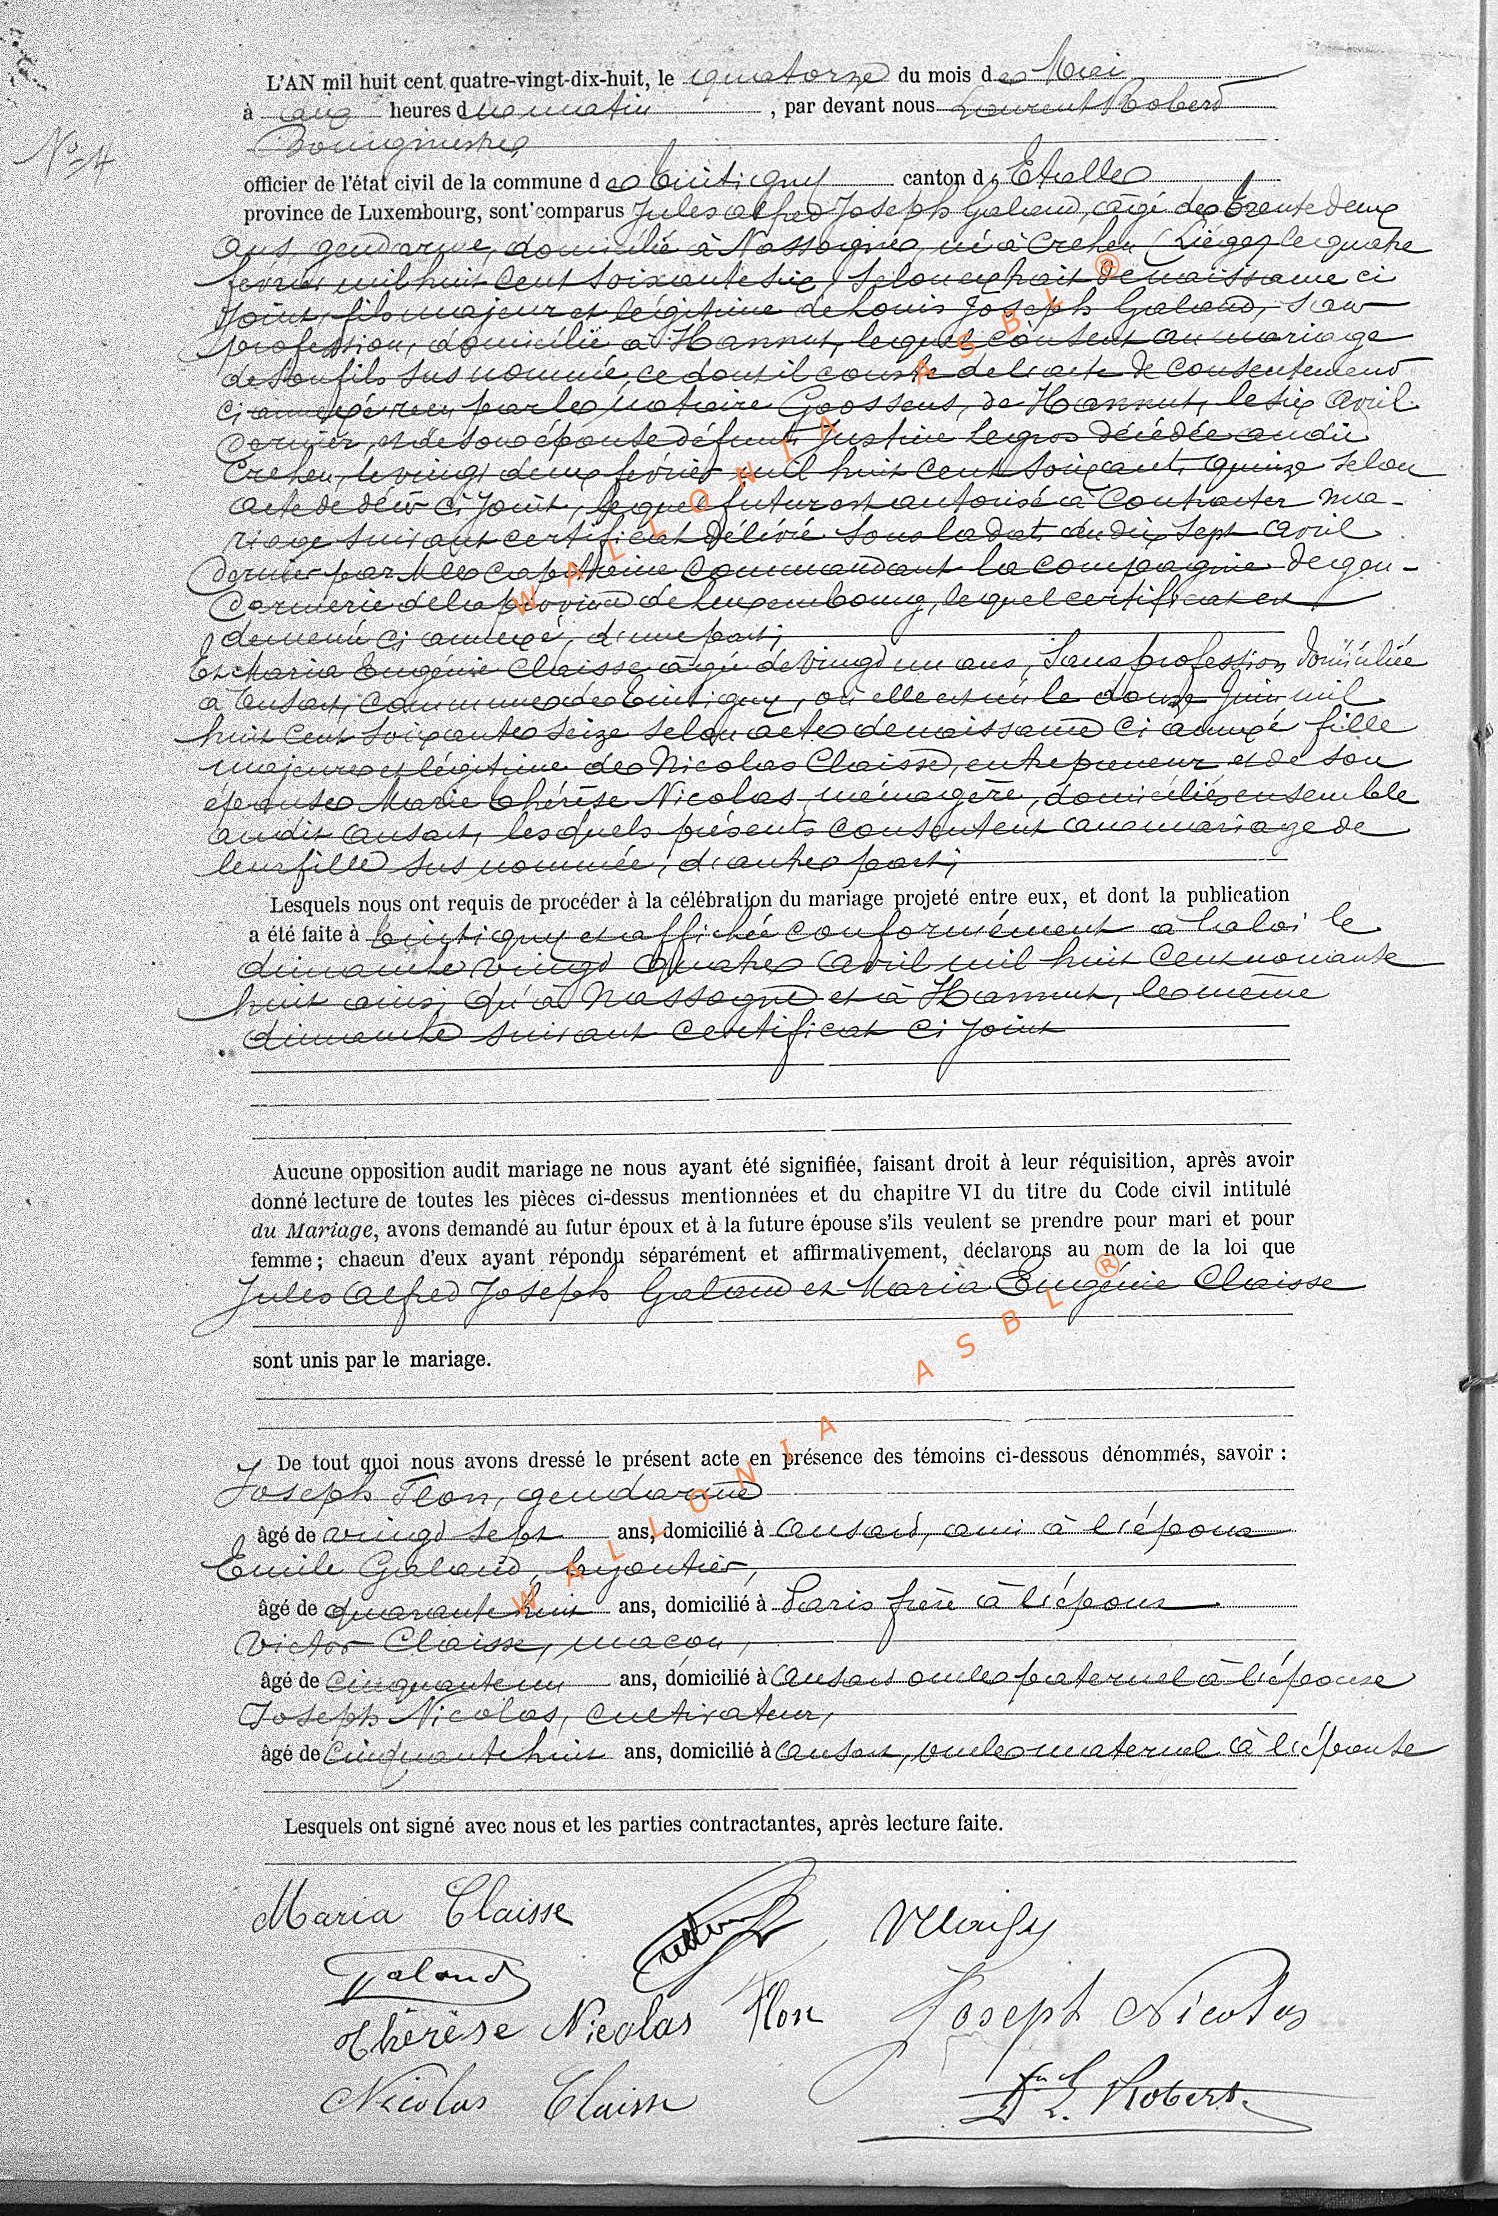 N° 4
L'AN mil huit cent quatre-vingt-dix-huit, le quatorze du mois de Mai
à onze heures du matin, par devant nous Laurent Robert
Bourgmestre,
officier de l'état civil de la commune de Tintigny canton d'Etalle
province de Luxembourg, sont comparus Jules Alfred Joseph Galand, âgé de trente deux
ans, gendarme, domicilié à Nassogne, né à Crehen (Liége) le quatre
février mil huit cent soixante six, selon extrait de naissance ci
joint, fils majeur et légitime de Louis Joseph Galand, sans
profession, domicilié à Hannut, lequel consent au mariage
de son fils sus nommé, ce dont il conste de l'acte de consentement
ci annexé reçu par le notaire Goossens, de Hannut, le six avril
dernier, et de son épouse défunte Justine Legros décédée audit
Crehen, le vingt deux février mil huit cent soixante quinze selon
acte de décès ci joint, lequel futur est autorisé à contracter ma-
riage suivant certificat délivré sous la date du dix sept avril
dernier par M. le capitaine commandant la compagnie de gen-
darmerie de la province de Luxembourg, lequel certificat est
demeuré ci annexé, d'une part;
Et Maria Eugénie Claisse âgée de vingt un ans, sans profession domiciliée
à Ansart, commune de Tintigny, où elle est née le douze juin mil
huit cent soixante seize selon acte de naissance ci annexé fille
majeure et légitime de Nicolas Claisse, entrepreneur et de son
épouse Marie Thérèse Nicolas, ménagère, domiciliés ensemble
audit Ansart, lesquels présents consentent au mariage de
leur fille sus nommée, d'autre part;
Lesquels nous ont requis de procéder à la célébration du mariage projeté entre eux, et dont la publication
a été faite à Tintigny et affichée conformément à la loi le
dimanche vingt quatre avril mil huit cent nonante
huit ainsi qu'à Nassogne et à Hannut, le même
dimanche suivant certificat ci joint
Aucune opposition audit mariage ne nous ayant été signifiée, faisant droit à leur réquisition, après avoir
donné lecture de toutes les pièces ci-dessus mentionnées et du chapitre VI du titre du Code civil intitulé
du Mariage, avons demandé au futur époux et à la future épouse s'ils veulent se prendre pour mari et pour
femme; chacun d'eux ayant répondu séparément et affirmativement, déclarons au nom de la loi que
Jules Alfred Joseph Galand et Maria Eugénie Claisse
sont unis par le mariage.
De tout quoi nous avons dressé le présent acte en présence des témoins ci-dessous dénommés, savoir :
Joseph Flon, gendarme
âgé de vingt sept ans, domicilié à Ansart, ami à l'époux
Emile Galand, bijoutier,
âgé de quarante huit ans, domicilié à Paris frère à l'époux
Victor Claisse, maçon,
âgé de cinquante un ans, domicilié à Ansart oncle paternel à l'épouse
Joseph Nicolas, cultivateur,
âgé de cinquante huit ans, domicilié à Ansart, oncle maternel à l'épouse
Lesquels ont signé avec nous et les parties contractantes, après lecture faite.
Maria Claisse
Galand
Thérèse Nicolas Flon Joseph Nicolas
Nicolas Claisse Dr L. Robert
WALLONIA ASBL ®
WALLONIA ASBL ®